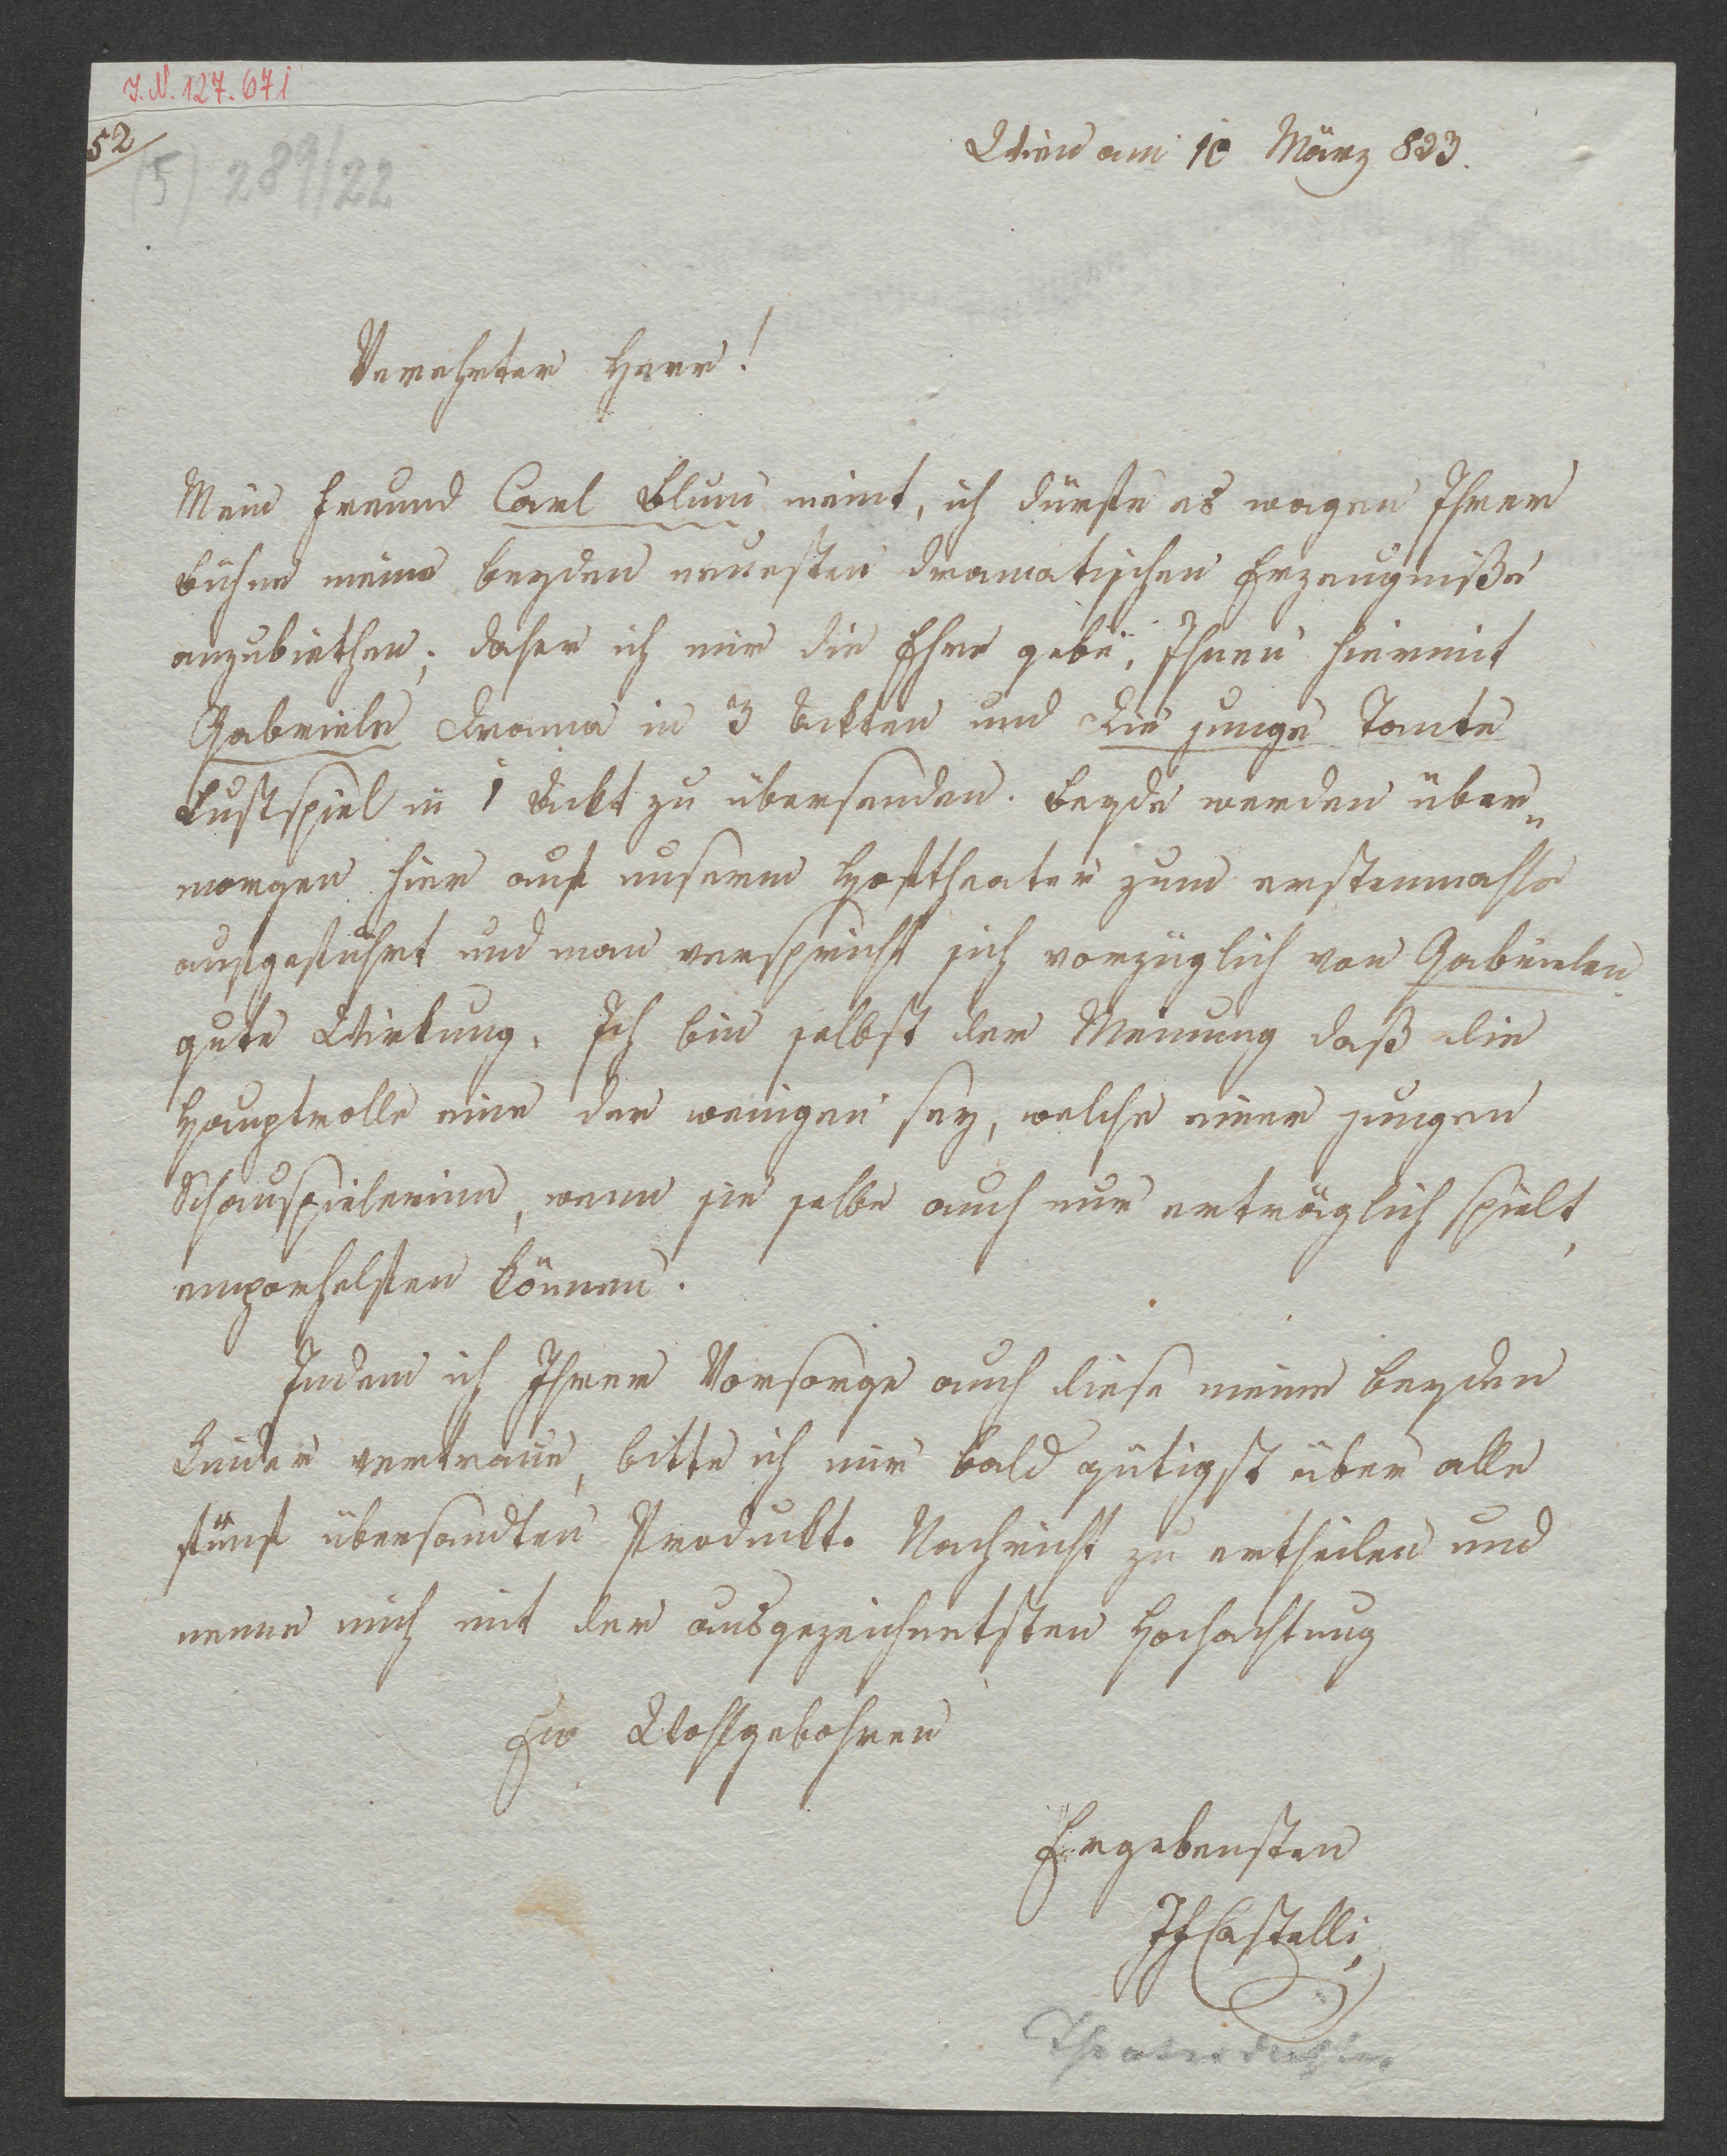 I.N. 127.671
52
(5) 289/22
Wien am 10 März 823.
Verehrter Herr!
Mein Freund Carl Blum meint, ich dürfte es wagen Ihrer
Bühne meine beyden neuesten dramatischen Erzeugniße
anzubiethen; daher ich mir die Ehre gebe, Ihnen hiermit
Gabriele Drama in 3 Ackten und die junge Tante
Lustspiel in 1 Ackt zu übersenden. Beyde werden über=
morgen hier auf unserm Hoftheater zum erstenmahle
aufgeführt und man verspricht sich vorzüglich von Gabrielen
gute Wirkung. Ich bin selbst der Meinung daß die
Hauptrolle eine der wenigen sey, welche einer jungen
Schauspielerinn, wenn sie selbe auch nur erträglich spielt,
emporhelfen können.
Indem ich Ihrer Vorsorge auch diese meine beyden
Kinder vertraue, bitte ich mir bald gütigst über alle
fünf übersandten Produckte Nachricht zu ertheilen und
nenne mich mit der ausgezeichnetsten Hochachtung
Ew Wohlgebohren
Ergebensten
IFCastelli
Theaterdichter